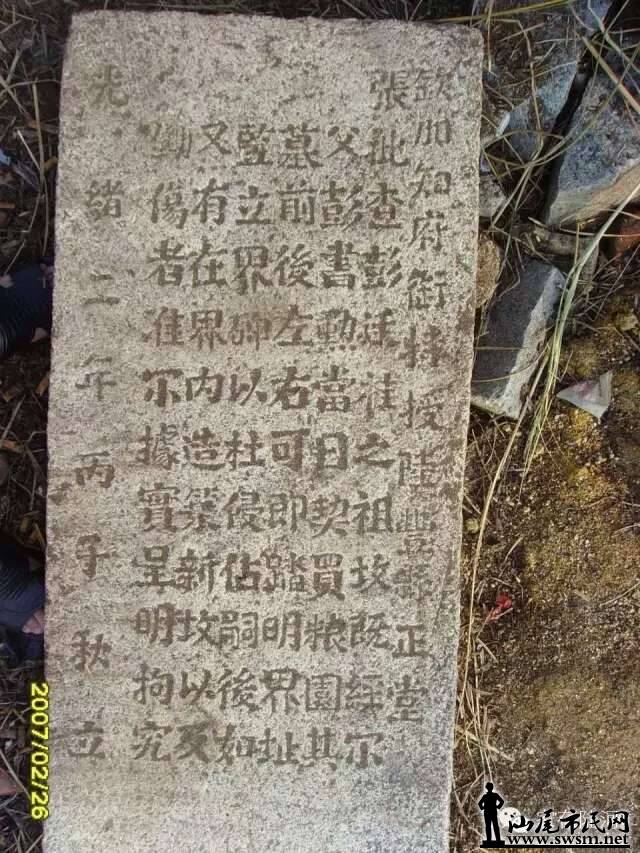 欽加知府銜特授陸豐縣正堂
張批查彭廷桂之祖坟既經尔
父彭書勳當日契買粮園其
墓前後左右可即踏明界址
監立界碑以杜侵佔嗣後如
又有在界内造築新坟以及
傷者准尔據實呈明拘究
光緒二年丙子秋立
2007/02/26
汕尾市民网
www.swsm.net